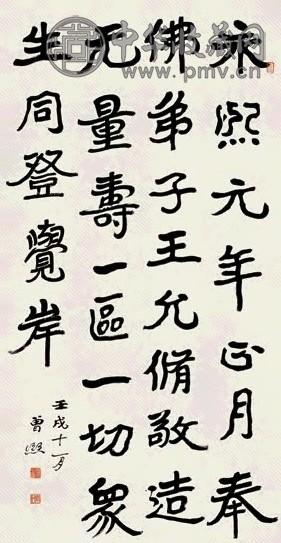 中华收藏网
www.pmv.cn
永熙元年正月奉
佛弟子王允脩敬造
无量壽一區一切眾
生同登覺岸
壬戌十一月
曾熙